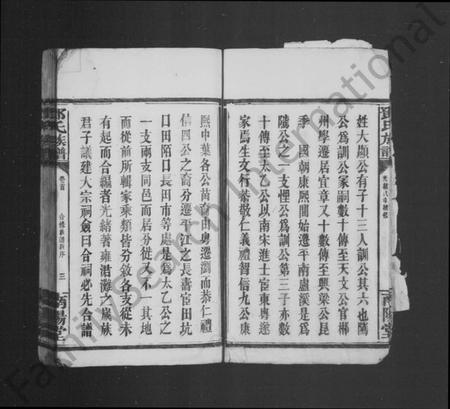 鄧氏族譜
南陽堂
姓大顯公有子十三人訓公其六也隲
公為訓公冢嗣數十傳至天文公官郴
州學遷居宜章又十數傳至興梁公昆
季 國朝康熙間始遷平南盧溪是為
隲公之一支悝公為訓公第三子亦數
十傳至太乙公以南宋進士宦東粵遂
家焉生文行恭敬仁義禮智信九公康
熙中葉各公苗裔由粵遷瀏而恭仁禮
信四公之裔分遷平江之長壽官田坑
口田陌口長田市等處是為太乙公之
一支兩支同邑而居分徙又不一其地
而從前所輯家乘類皆分敘各支從未
有起而合編者光緒著雍涒灘之歲族
君子議建大宗祠僉曰合祠必先合譜
鄧氏族譜
卷首
合修族譜新序
三
南陽堂
FamilySearch International